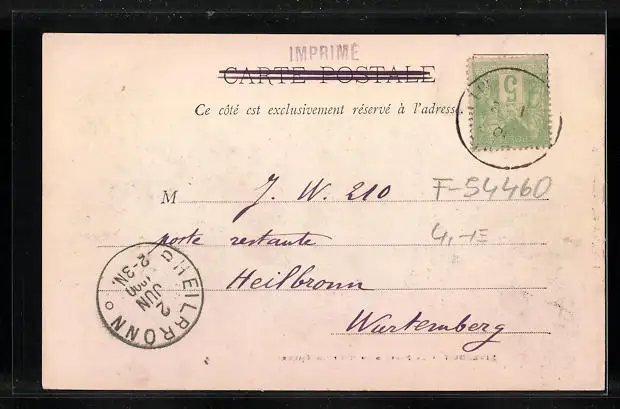 IMPRIMÉ
CARTE POSTALE
Ce côté est exclusivement réservé à l'adresse
5
M J. W. 210
F-S4460
poste restante
4,-
Heilbronn
Wurtemberg
HEILBRONN
2 JUN
2-3N.